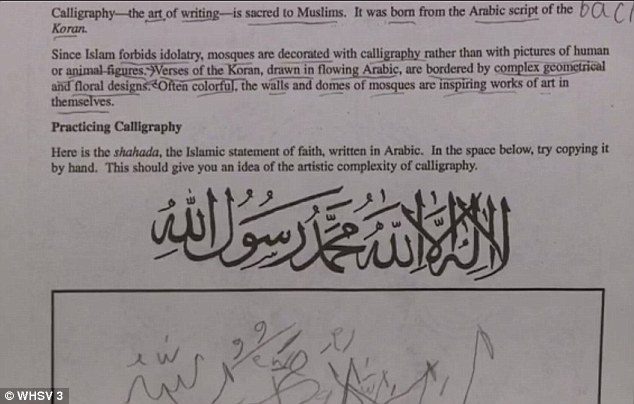 Calligraphy—the art of writing—is sacred to Muslims. It was born from the Arabic script of the
Koran.
Since Islam forbids idolatry, mosques are decorated with calligraphy rather than with pictures of human
or animal figures. Verses of the Koran, drawn in flowing Arabic, are bordered by complex geometrical
and floral designs. Often colorful, the walls and domes of mosques are inspiring works of art in
themselves.
Practicing Calligraphy
Here is the shahada, the Islamic statement of faith, written in Arabic. In the space below, try copying it
by hand. This should give you an idea of the artistic complexity of calligraphy.
لا إله إلا الله محمد رسول الله
© WHSV 3